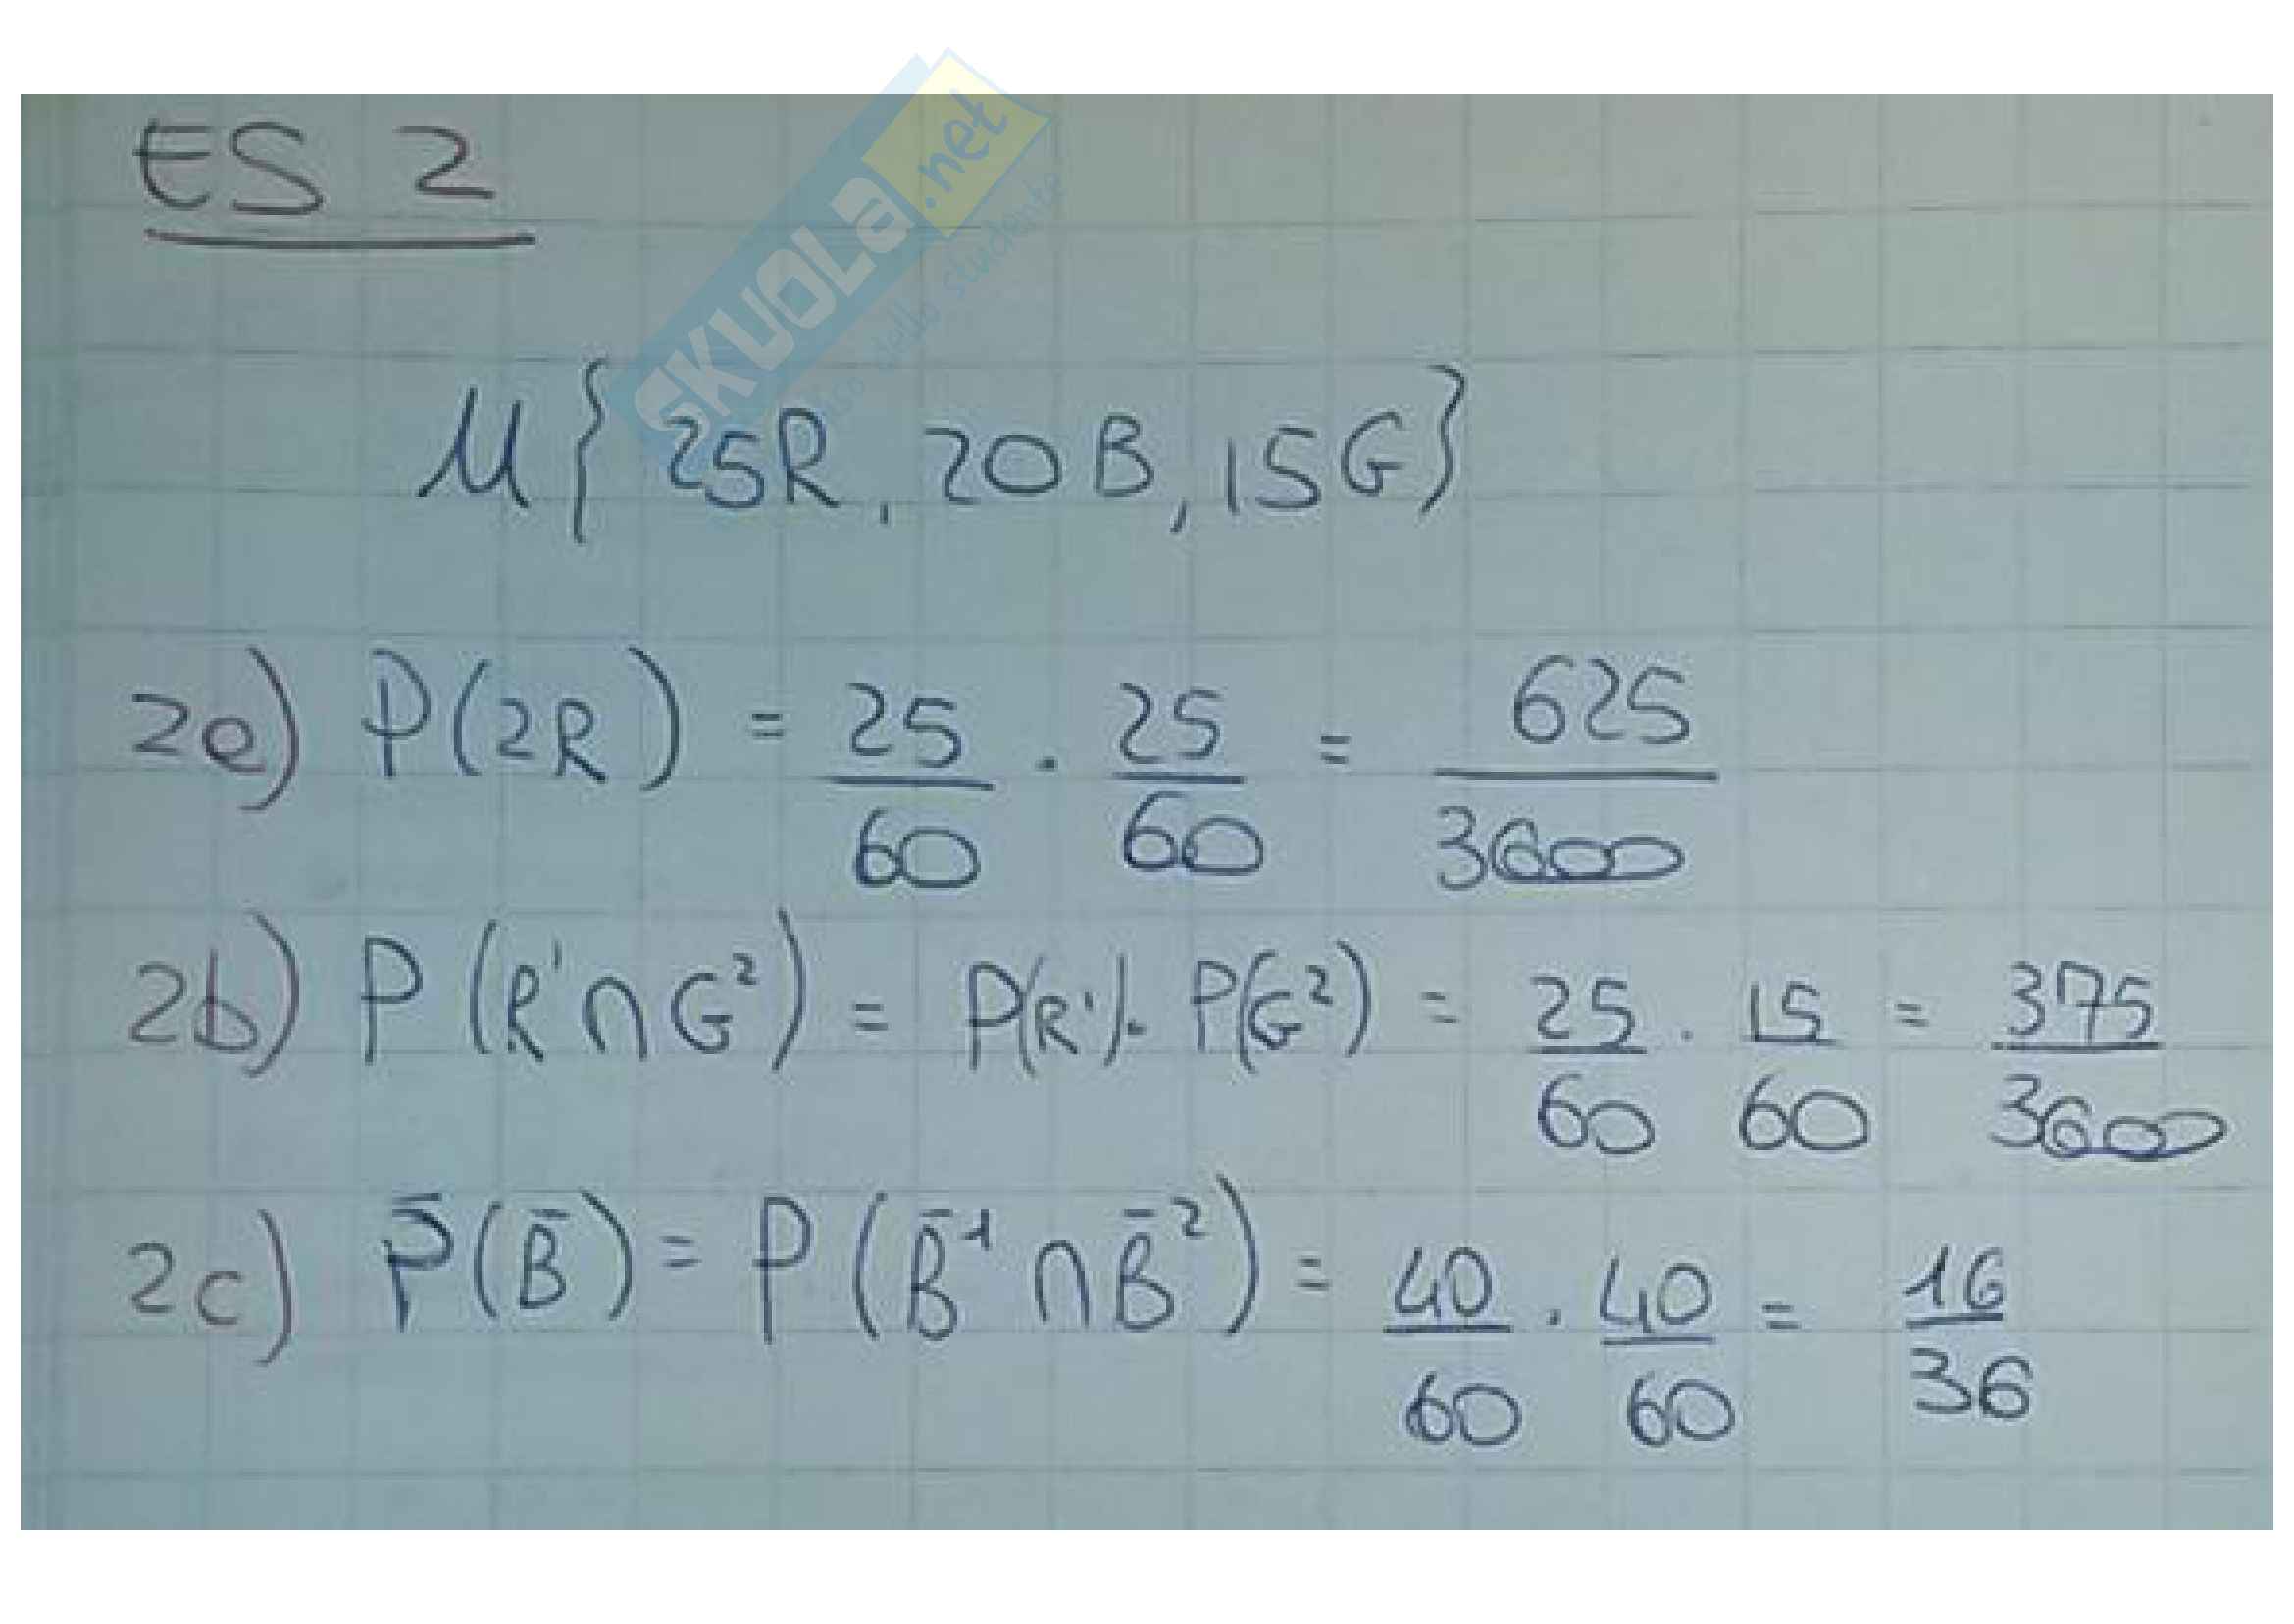 ES 2
SKUOLA.net
dello studente
U{25R, 20B, 15G}
2a) P(2R) = 25/60 · 25/60 = 625/3600
2b) P(R¹∩G²) = P(R¹)· P(G²) = 25/60 · 15/60 = 375/3600
2c) P(B̄) = P(B̄¹∩B̄²) = 40/60 · 40/60 = 16/36